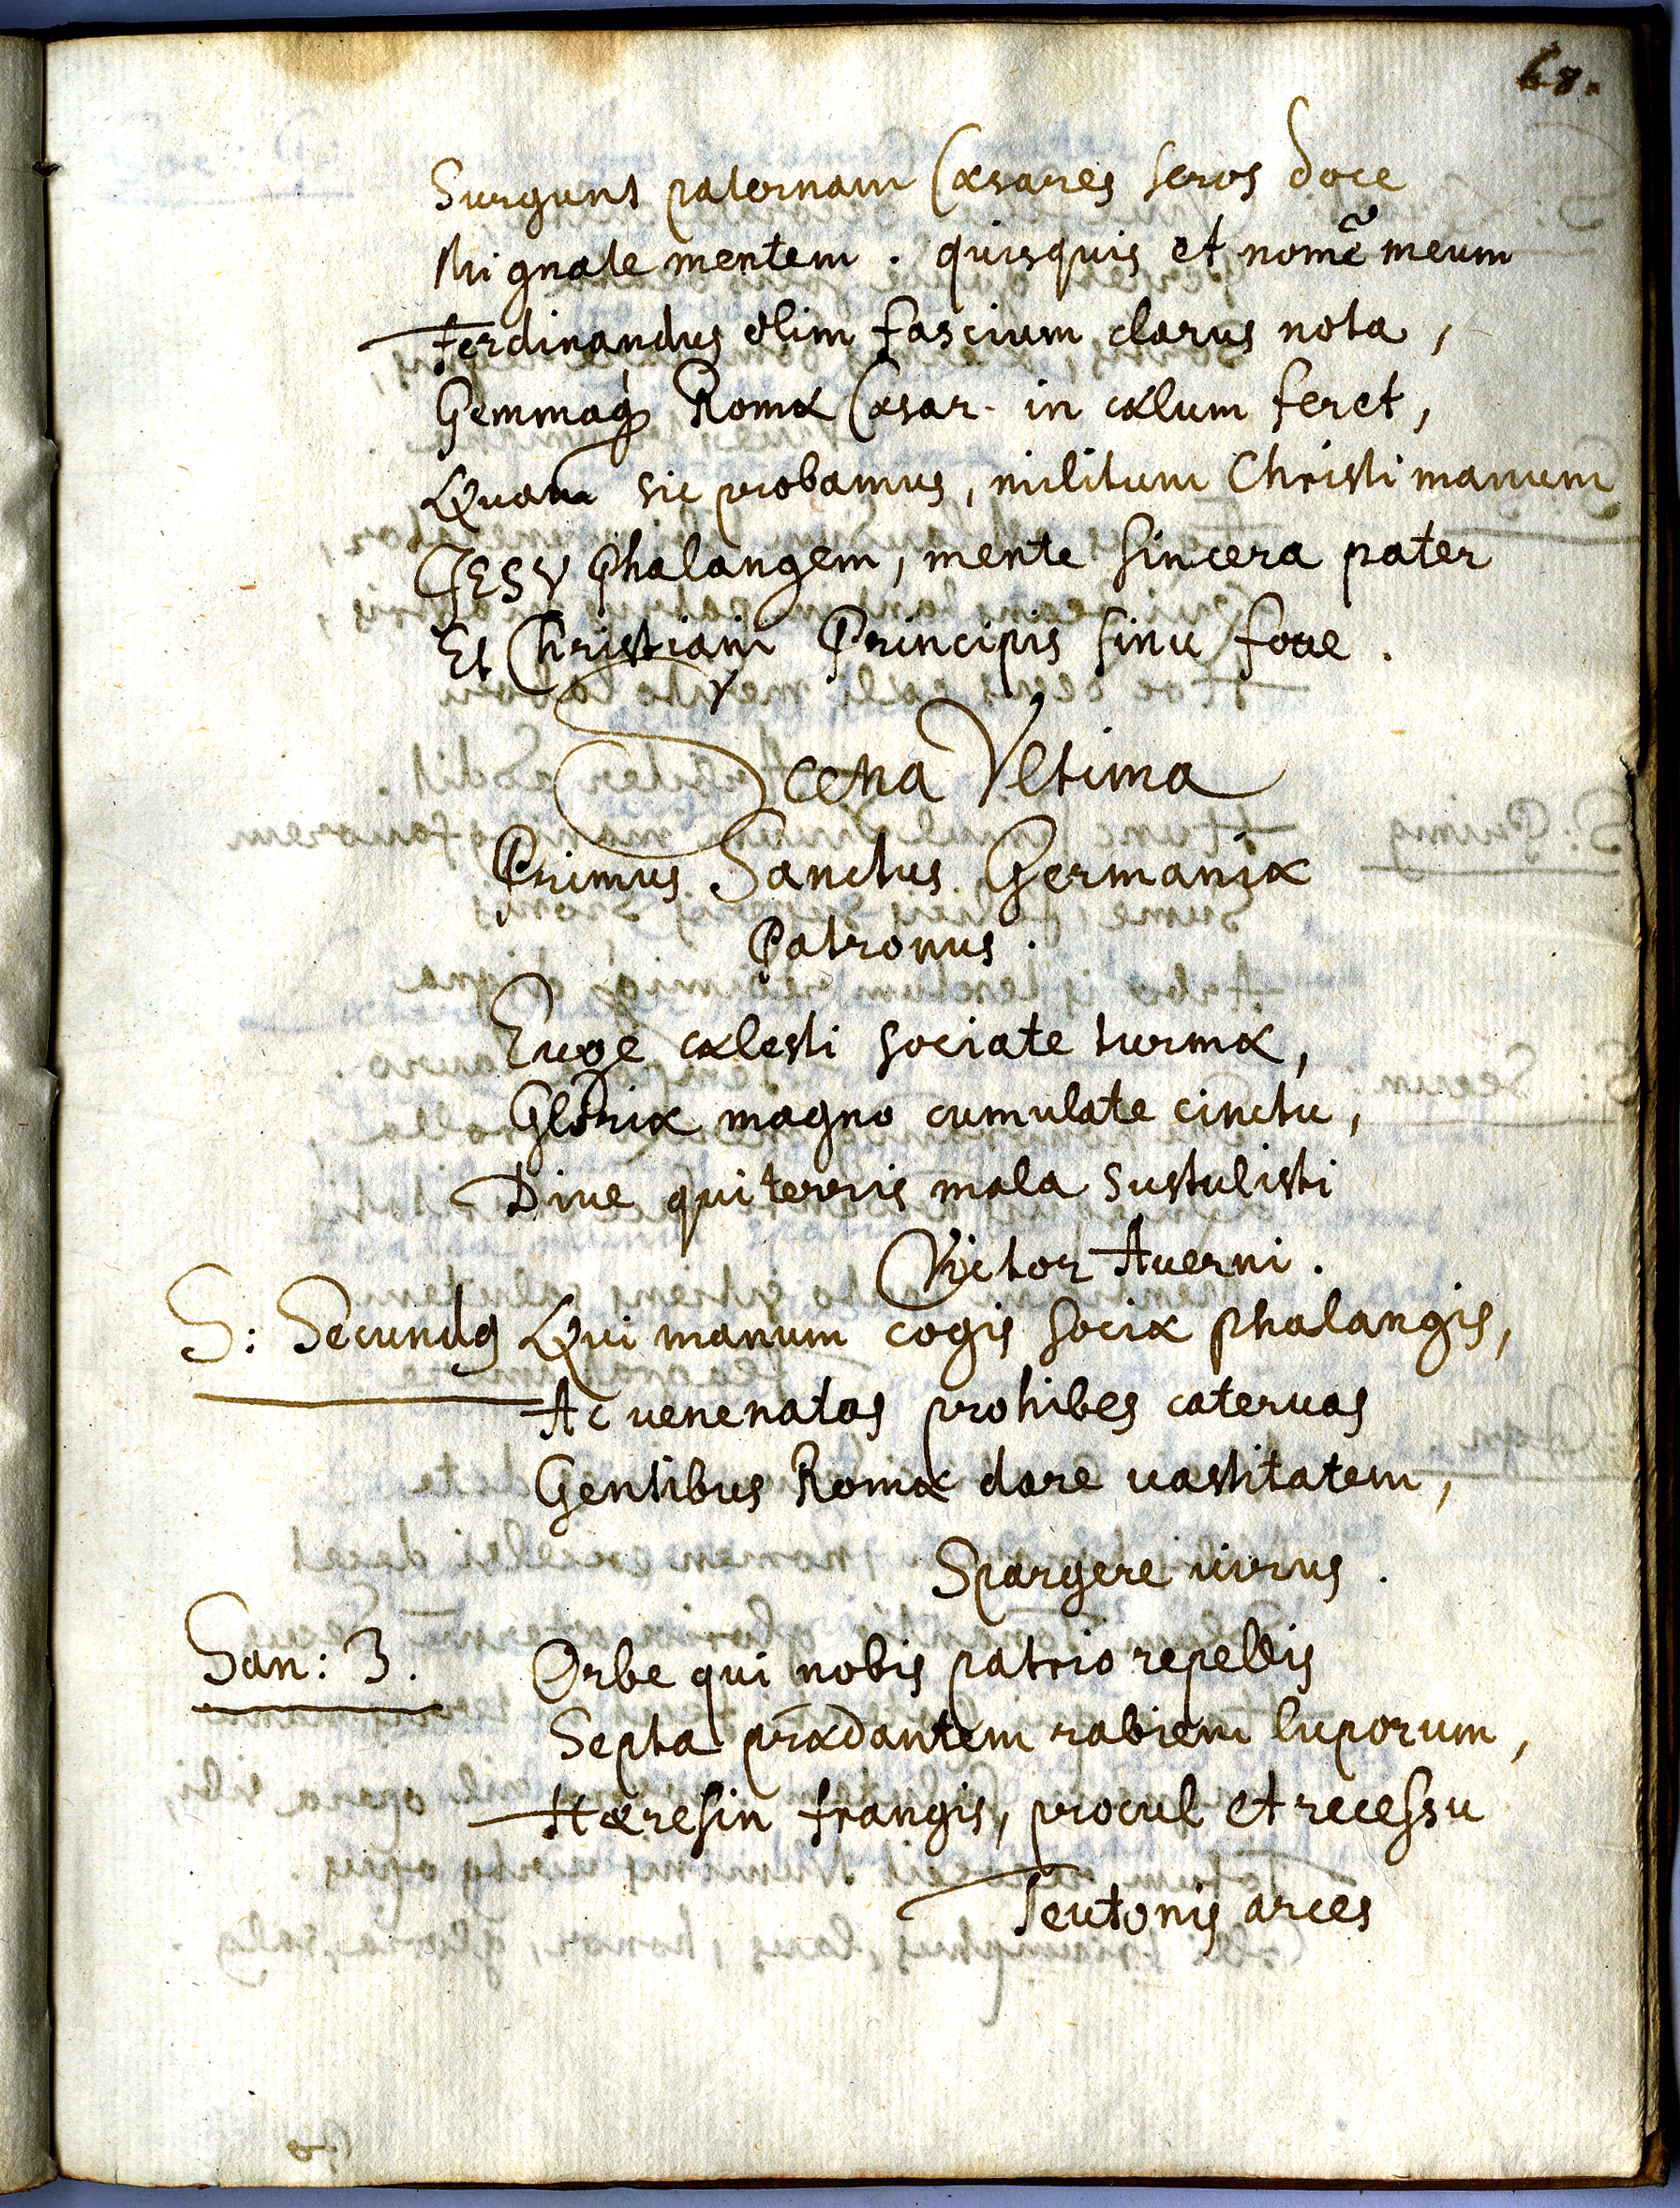 68.
Surgunt paternam Cæsares seros doce
Mi gnate mentem. quisquis et nomē meum
Ferdinandus olim fascium clarus nota,
Gemmaq́ꝫ Romæ Cæsar in cælum feret,
Quam sic probamus, militum Christi manum
JESV Phalangem, mente sincera pater
Et Christiani Principis sinu foue.
Scena Vltima
Primus Sanctus Germaniæ
Patronus.
Euge cælesti sociate turmæ,
Gloriæ magno cumulate cinctu,
Diue qui terris mala sustulisti
Victor Auerni.
S: Secundꝯ Qui manum cogis sociæ phalangis,
Ac uenenatas prohibes cateruas
Gentibus Romæ dare uastitatem,
Spargere uirus.
San: 3. Orbe qui nobis patrio repellis
Septa prædantem rabiem luporum,
Hæresin frangis, procul et recessu
Teutonis arces